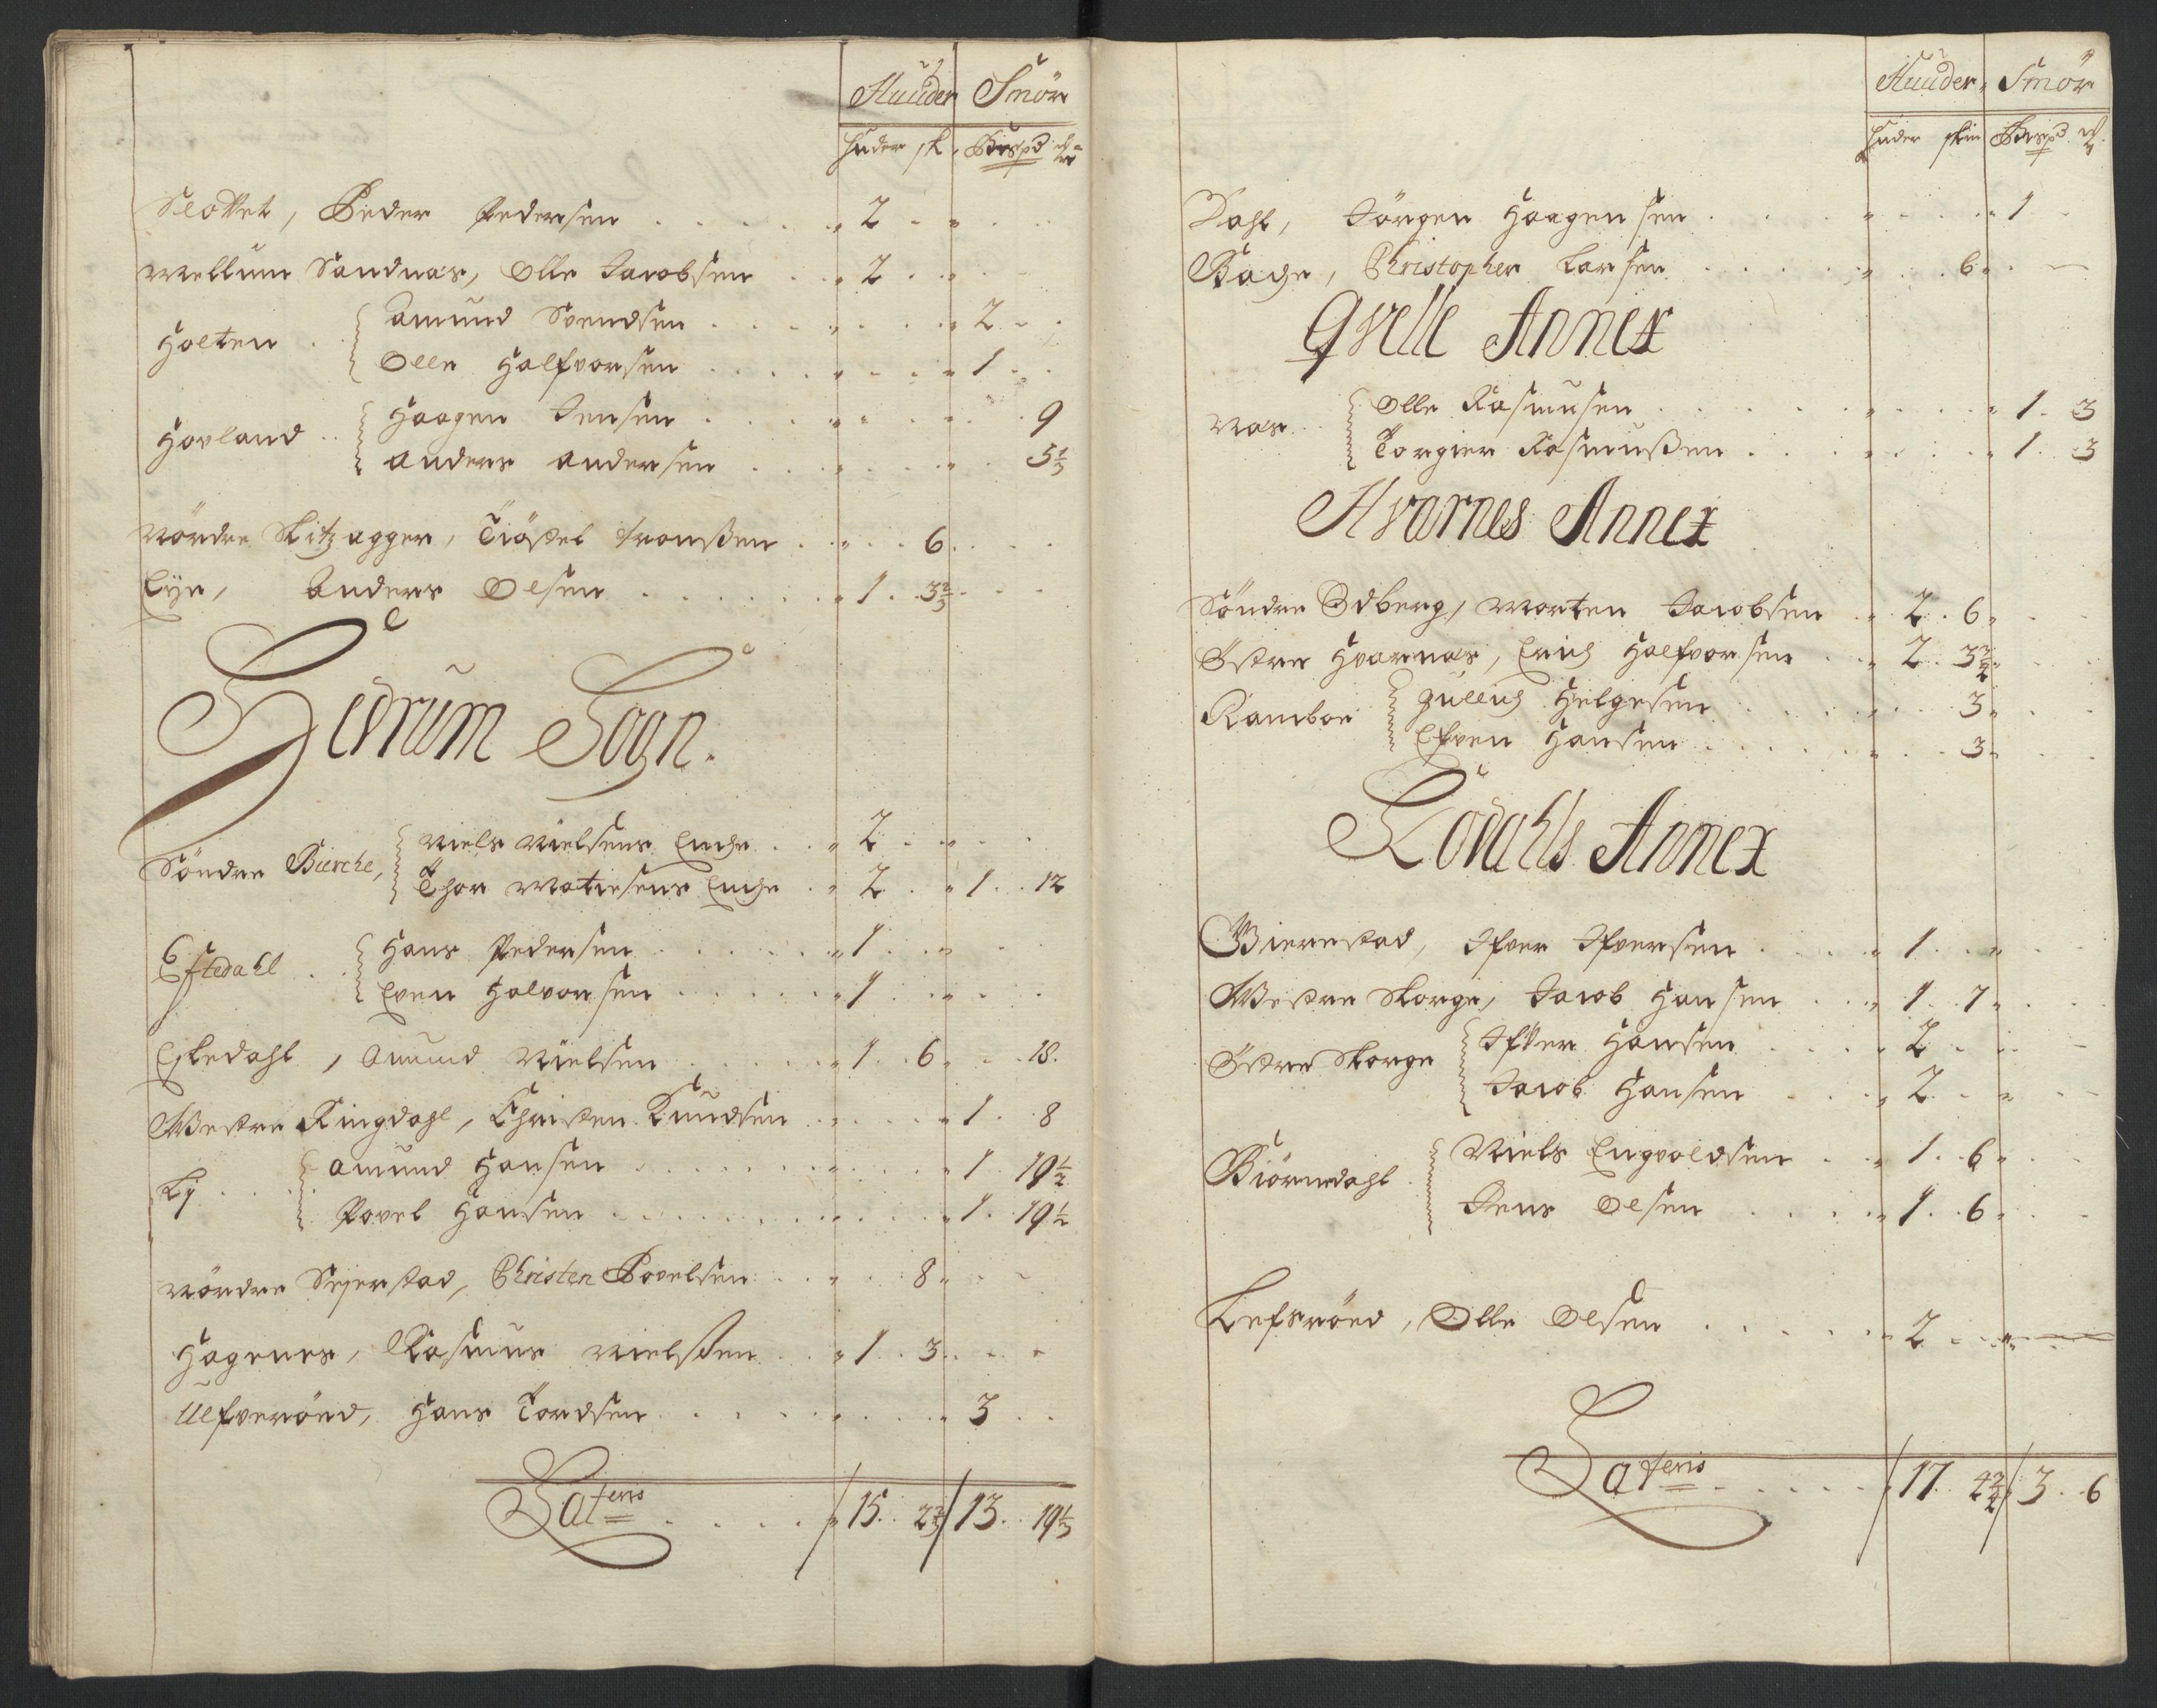 Huuder Smör
Huder sk. Bispd
Slottet, Peder Pedersen . . . 2 -
Mellum Sandnas, Olle Jacobsen . . 2 . .
Holten . . Amund Svendsen . . . 2 - .
Olle Halfvorsen . . . 1 . .
Hovland . . Haagen Jensen . . . 9
Anders Andersen . . . 5 1/3
Nördre Skitzagger, Tiöstel Tronßen . . 6 . .
Eye, Anders Olsen . . . 1 . 3 2/3
Hedrum Sogn.
Söndre Bierche, Niels Nielsens Enche . . 2 . .
Thor Matiesens Enche . . 2 . . 1 . . 12
Eftedahl . . Hans Pedersen . . . 1 . .
Even Halvorsen . . . 1 . .
Eskedahl, Amund Nielsen . . . 1 . . 6 . . 18.
Westre Ringdahl, Christen Knudsen . . . 1 . . 8
Ly . . Amund Hansen . . . 1 19 1/2
Povel Hansen . . . 1 . . 19 1/2
Nördre Sejerstad, Christen Povelsen . . 8 . .
Hagenes, Rasmus Nielsßen . . 1 . . 3 . .
Ulfveröed, Hans Tordsen . . . 3 . .
Lateris . . . 15 . . 2 2/3 13 . . 19 1/3
Huuder Smör
Huder skin Bispd
Dahl, Jörgen Haagensen . . . 1 -
Bage, Christopher Larsen . . . 6 . .
Qvelle Annex
Nas . . Olle Rasmusen . . . 1 . 3
Torgier Rasmußen . . . 1 . 3
Hvarnes Annex
Söndre Odberg, Morten Jacobsen . 2 . 6
Östre Hvarnas, Erich Halfvorsen . . 2 . 3 3/4
Ramboe Gullich Helgesen . . . 3
Efven Hansen . . . 3
Kodahls Annex
Bierestad, Ifver Ifversen . . . 1 . .
Westre Skorge, Jacob Hansen . . 1 . 7
Östre Skorge Ifver Hansen . . . 2 . .
Jacob Hansen . . . 2 . .
Biörndahl Niels Engvoldsen . . 1 . . 6
Jens Olsen . . . 1 . . 6
Lefsröed, Olle Olsen . . . 2 . .
Lateris . . . 17 . . 4 3/4 3 . . 6